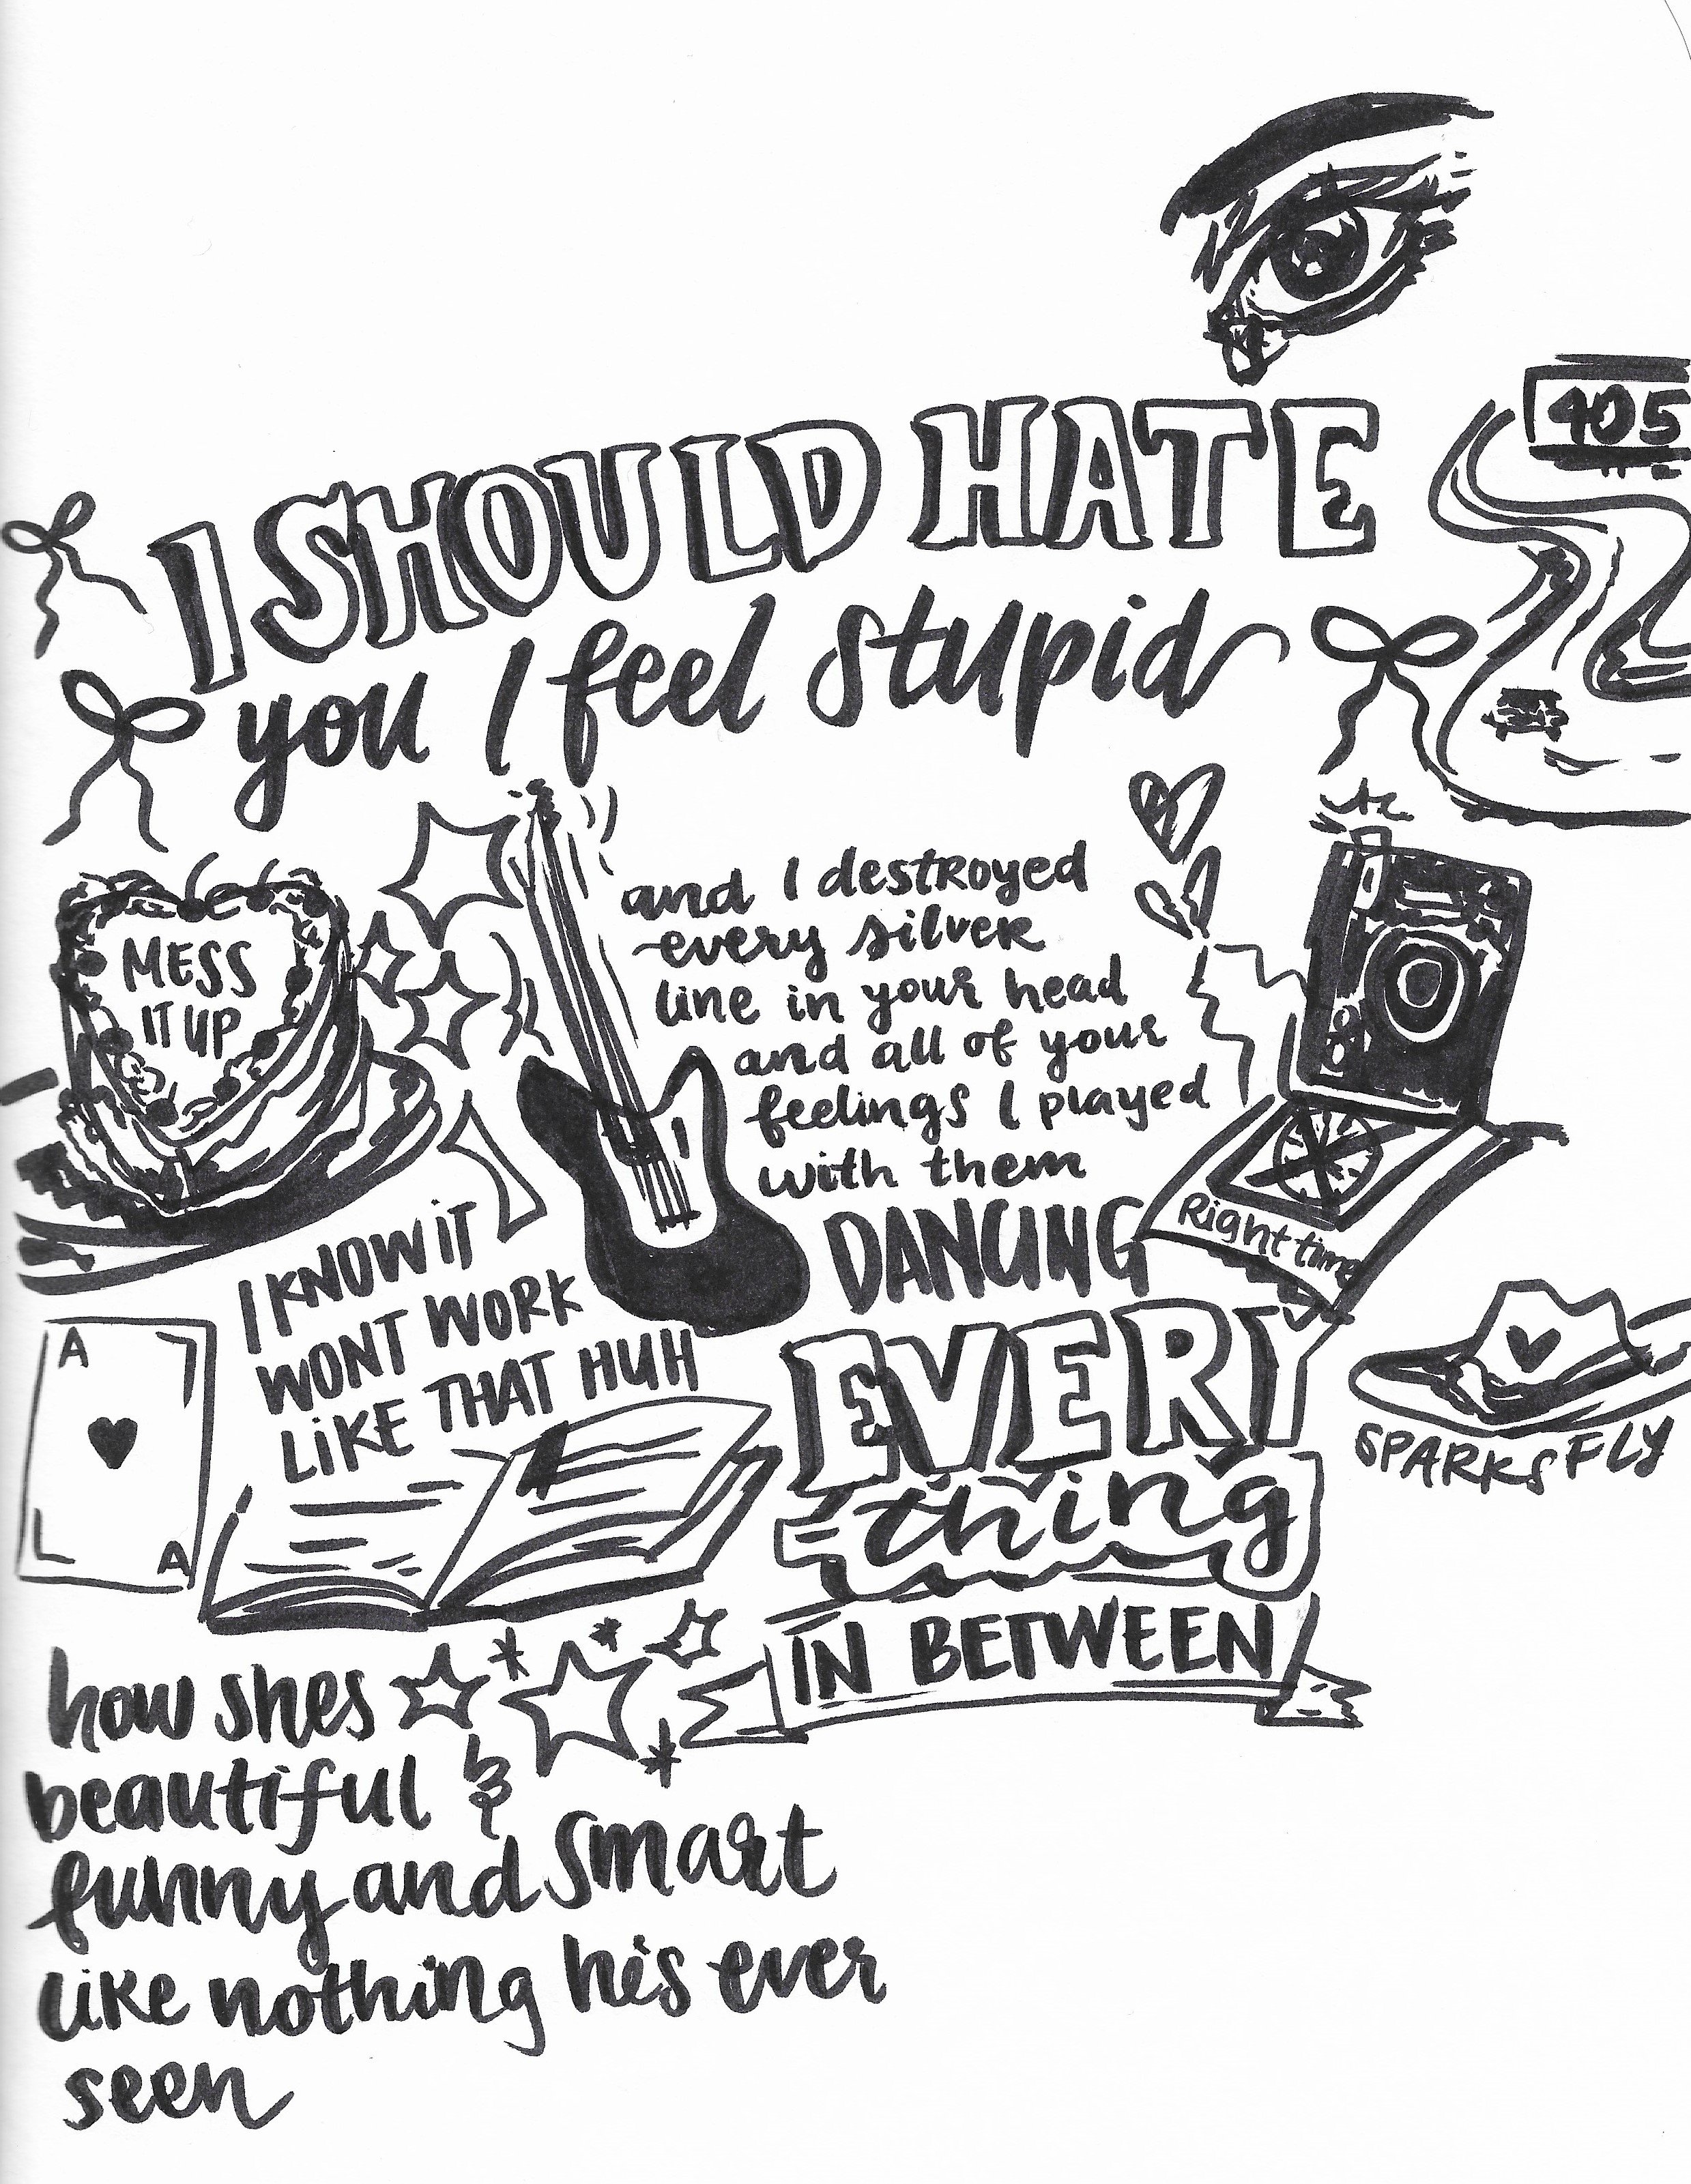 405
I SHOULD HATE
you I feel stupid
MESS
IT UP
and I destroyed
every silver
line in your head
and all of your
feelings I played
with them
Right time
I KNOW IT
WONT WORK
LIKE THAT HUH
DANCING
EVERY
thing
IN BETWEEN
A
L
A
SPARKS FLY
how shes
beautiful &
funny and smart
like nothing his ever
seen